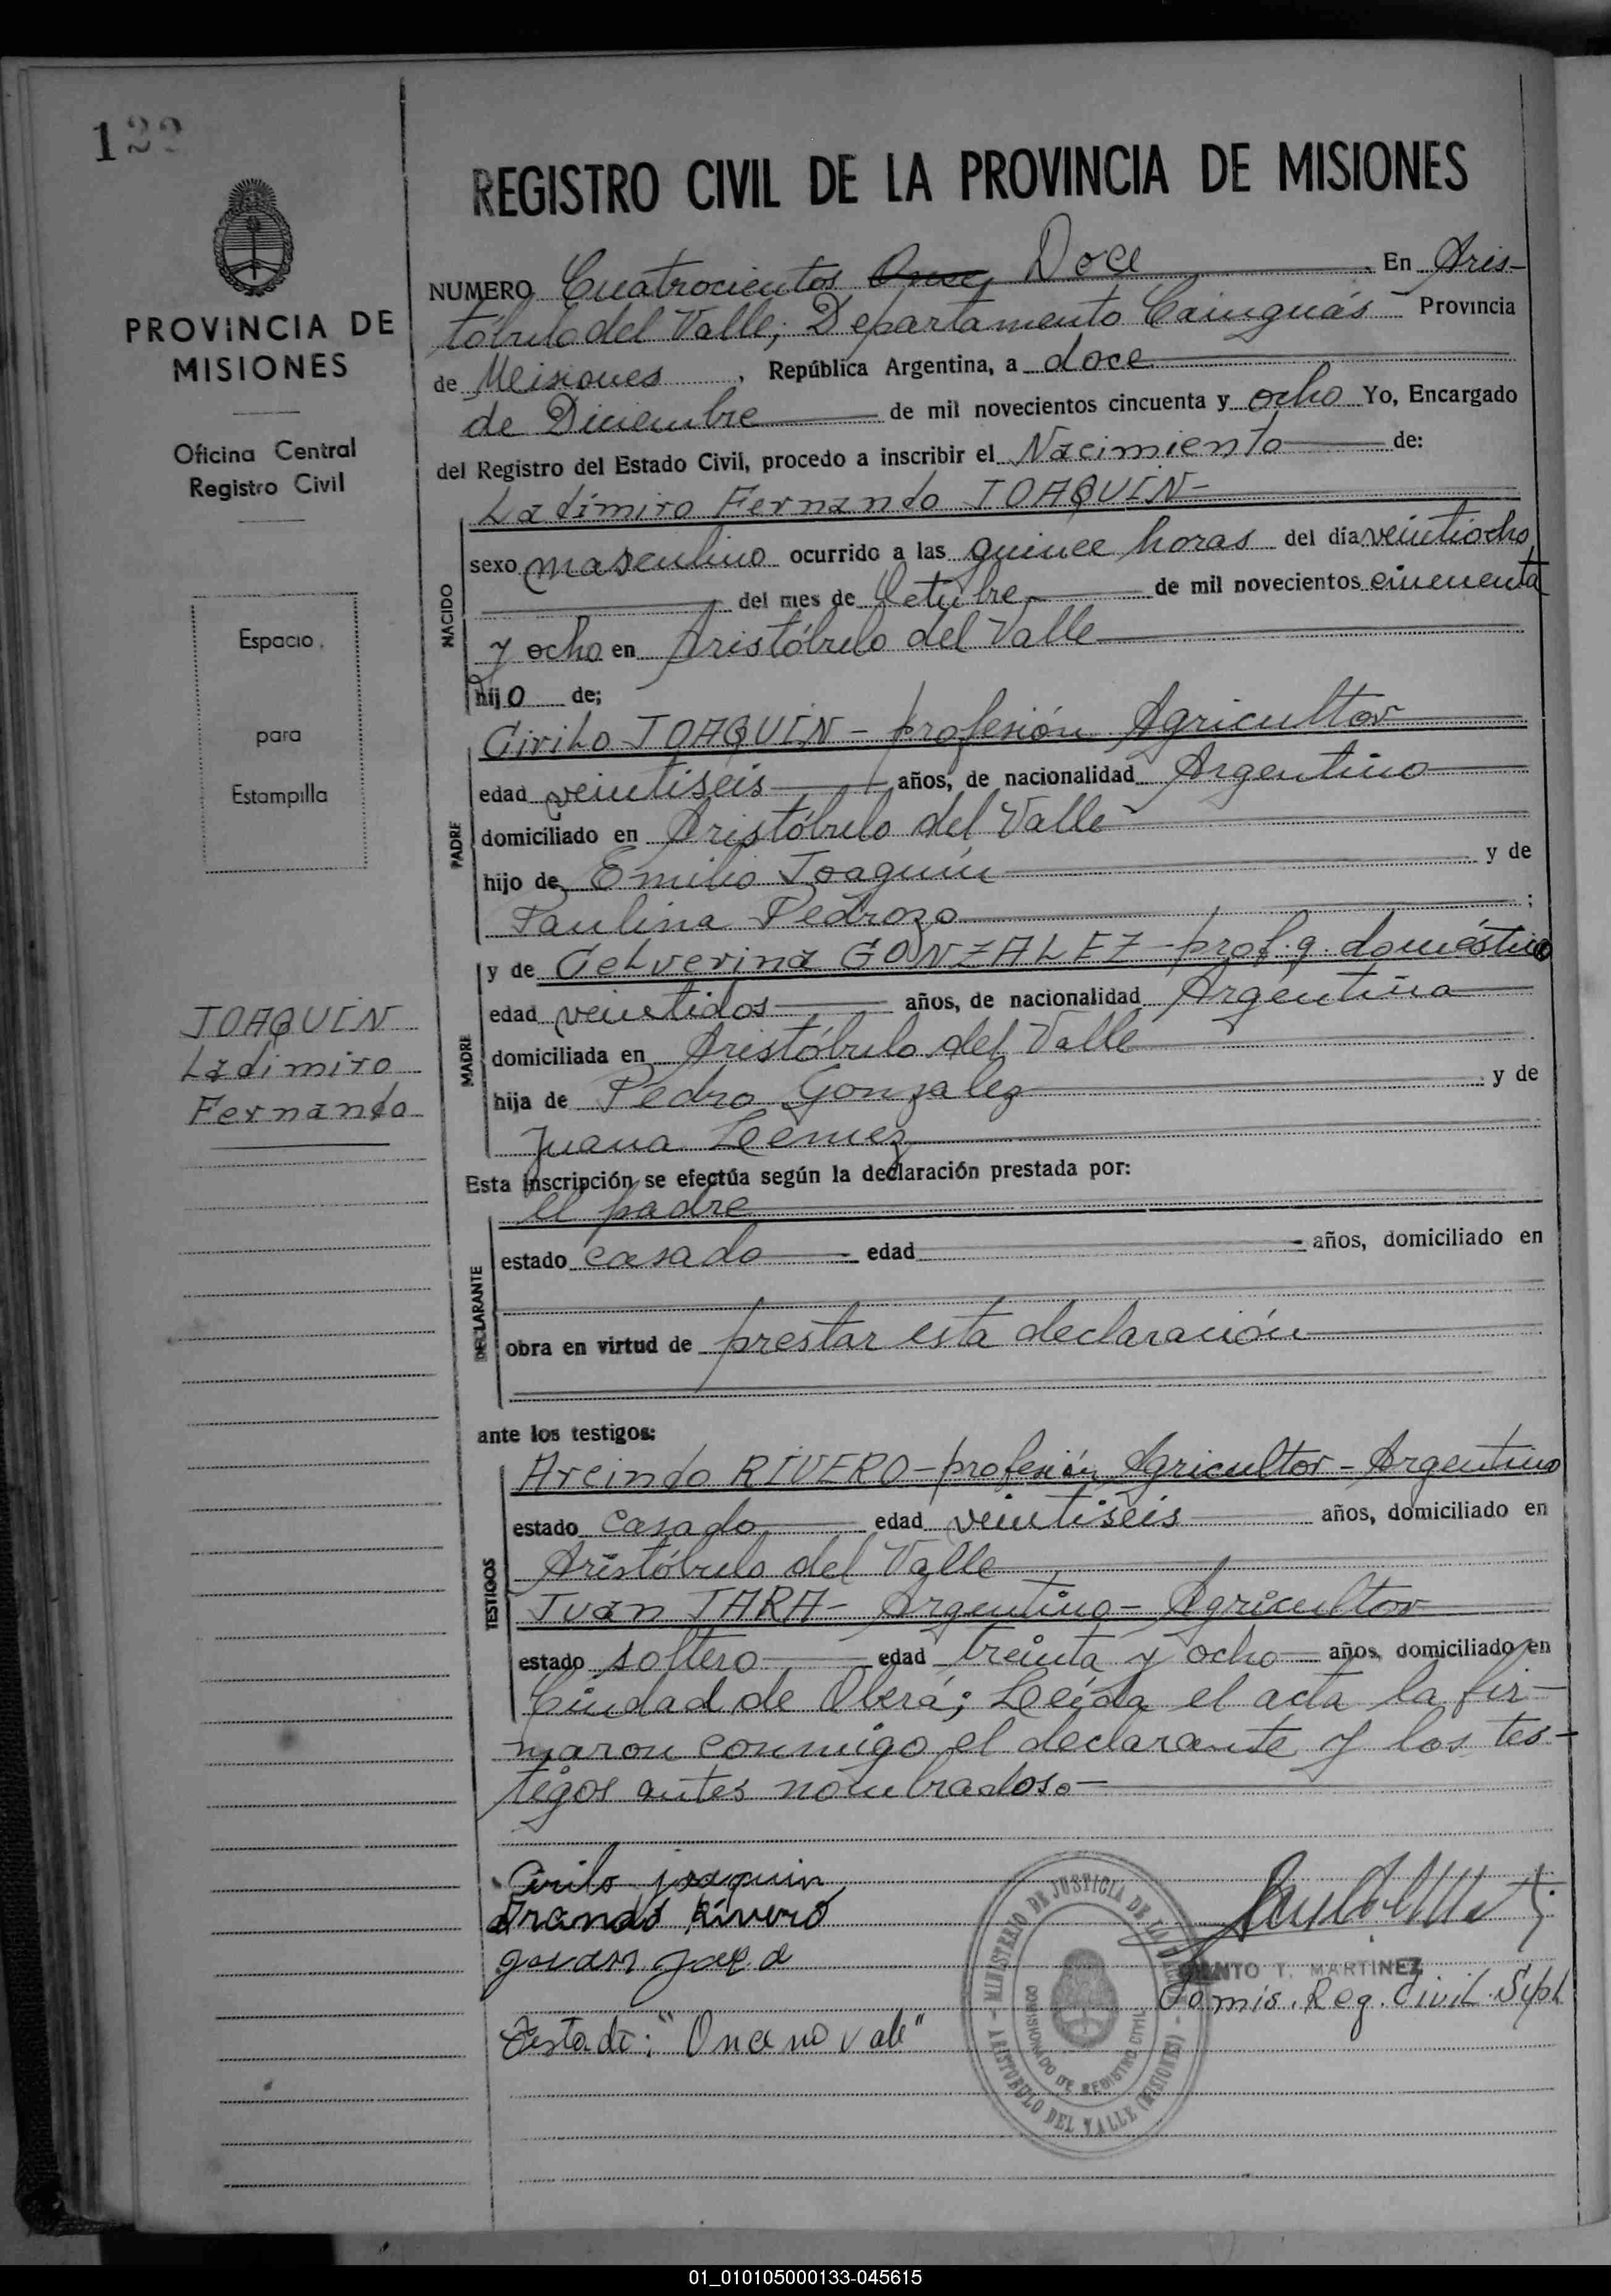 122
REGISTRO CIVIL DE LA PROVINCIA DE MISIONES
PROVINCIA DE
MISIONES
Oficina Central
Registro Civil
Espacio
para
Estampilla
JOAQUIN
Ladimiro
Fernando
NUMERO Cuatrocientos Once, Doce En Aris-
tóbulo del Valle; Departamento Cainguás - Provincia
de Misiones, República Argentina, a doce
de Diciembre de mil novecientos cincuenta y ocho Yo, Encargado
del Registro del Estado Civil, procedo a inscribir el Nacimiento de:
NACIDO
Ladimiro Fernando JOAQUIN-
sexo masculino ocurrido a las quince horas del dia veintiocho
del mes de Octubre de mil novecientos cincuenta
y ocho en Aristóbulo del Valle
hijo de;
PADRE
Cirilo JOAQUIN - profesión Agricultor
edad veintiseis años, de nacionalidad Argentino
domiciliado en Aristóbulo del Valle
hijo de Emilio Joaquin y de
Paulina Pedrozo ;
MADRE
y de Celverina GONZALEZ - prof. q. doméstico
edad veintidos años, de nacionalidad Argentina
domiciliada en Aristóbulo del Valle
hija de Pedro Gonzalez y de
Juana
Esta inscripción se efectúa según la declaración prestada por:
DECLARANTE
el padre
estado casado edad años, domiciliado en
obra en virtud de prestar esta declaración
ante los testigos:
TESTIGOS
Arcindo RIVERO - profesión Agricultor - Argentino
estado casado edad veintiseis años, domiciliado en
Aristóbulo del Valle
Juan JARA - Argentino - Agricultor
estado soltero edad treinta y ocho años, domiciliado en
Ciudad de Oberá; Leída el acta la fir-
maron conmigo el declarante y los tes-
tigos antes nombrados.-
Cirilo joaquin
Rivero
Jara
MINISTERIO DE JUSTICIA DE LA
COMISIONADO DE REGISTRO CIVIL
ARISTOBULO DEL VALLE (MISIONES)
SANTO T. MARTINEZ
Comis. Reg. Civil Supl
Testado: "Once no vale"
01_010105000133-045615